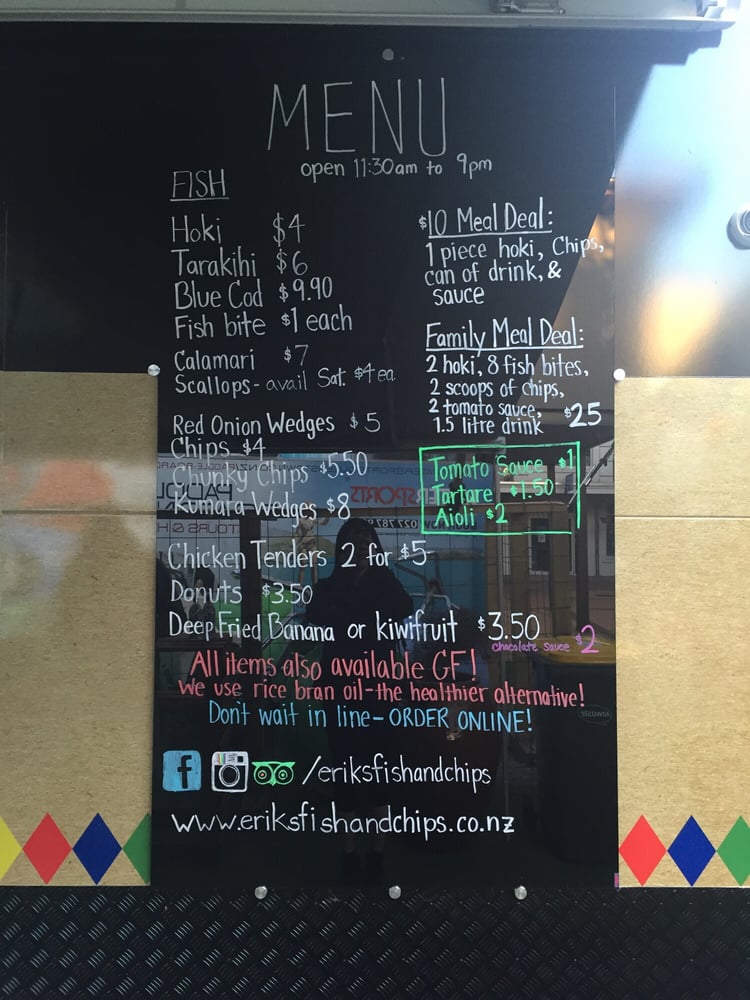 MENU
open 11:30am to 9pm
FISH
Hoki $4
Tarakihi $6
Blue Cod $9.90
Fish bite $1 each
Calamari $7
Scallops - avail Sat. $4 ea
Red Onion Wedges $5
Chips $4
Chunky Chips $5.50
Kumara Wedges $8
$10 Meal Deal:
1 piece hoki, Chips,
can of drink, &
sauce
Family Meal Deal:
2 hoki, 8 fish bites,
2 scoops of chips,
2 tomato sauce,
1.5 litre drink $25
Tomato Sauce $1
Tartare $1.50
Aioli $2
Chicken Tenders 2 for $5
Donuts $3.50
Deep Fried Banana or kiwifruit $3.50
chocolate sauce $2
All items also available GF!
We use rice bran oil - the healthier alternative!
Don't wait in line - ORDER ONLINE!
f /eriksfishandchips
www.eriksfishandchips.co.nz